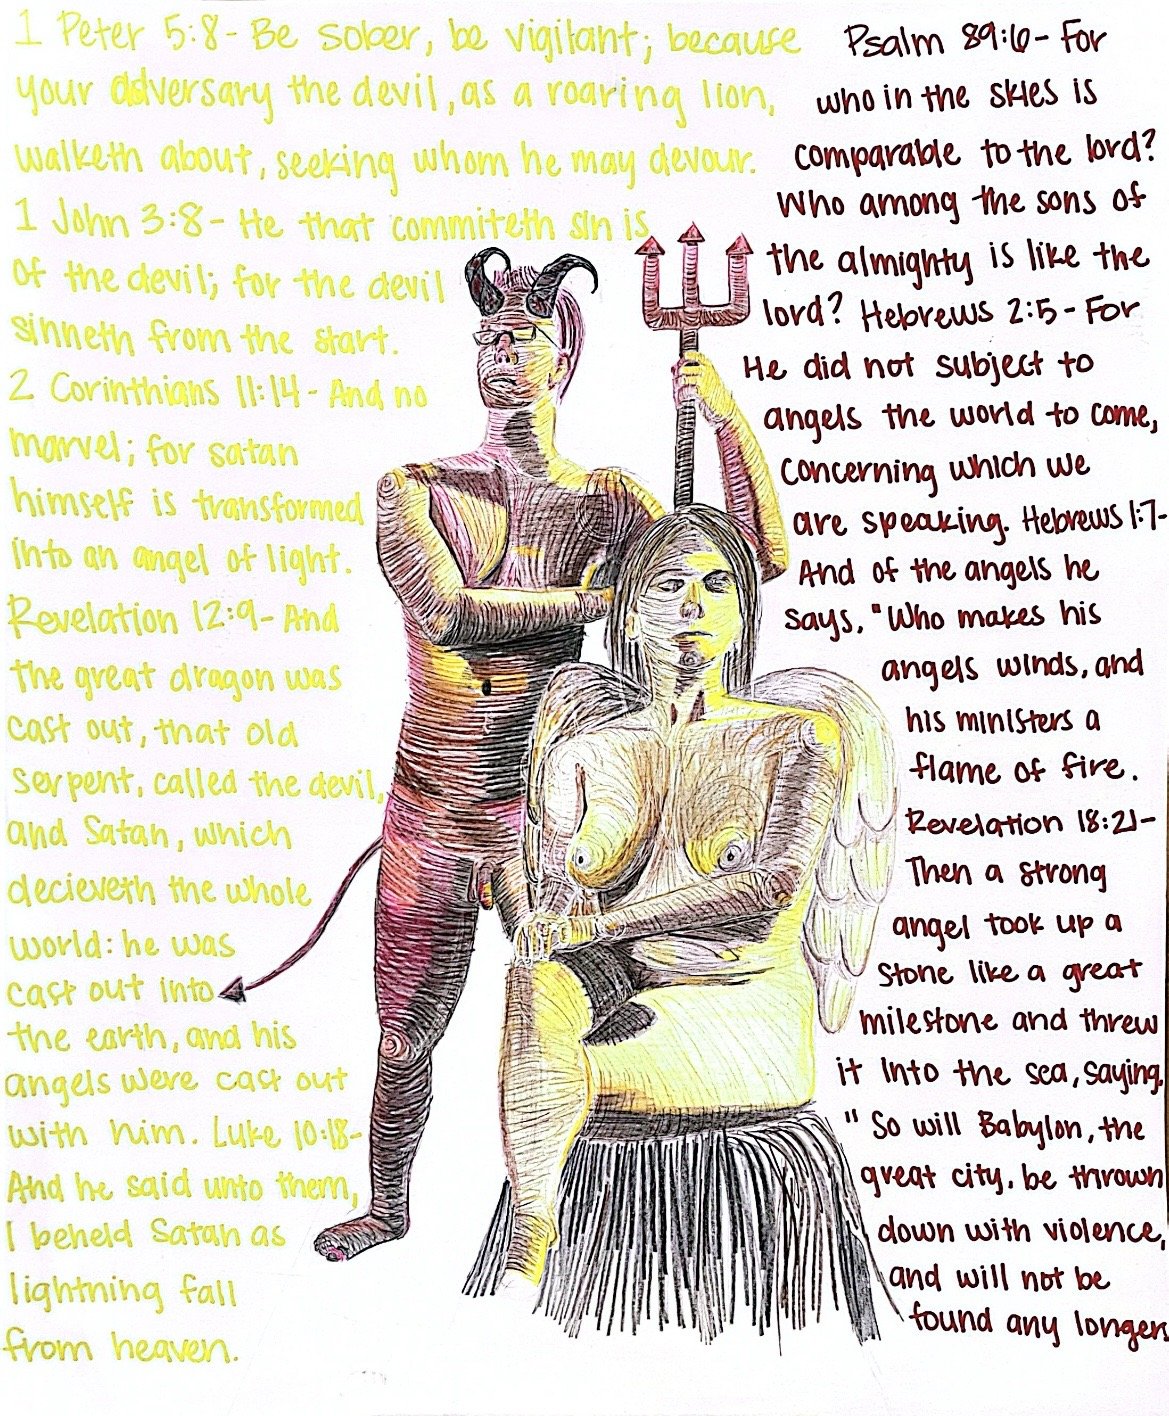 1 Peter 5:8- Be sober, be vigilant; because
your adversary the devil, as a roaring lion,
walketh about, seeking whom he may devour.
1 John 3:8- He that commiteth sin is
of the devil; for the devil
sinneth from the start.
2 Corinthians 11:14- And no
marvel; for satan
himself is transformed
into an angel of light.
Revelation 12:9- And
the great dragon was
cast out, that old
serpent, called the devil,
and Satan, which
decieveth the whole
world: he was
cast out into
the earth, and his
angels were cast out
with him. Luke 10:18-
And he said unto them,
I beheld Satan as
lightning fall
from heaven.
Psalm 89:6- For
who in the skies is
comparable to the lord?
Who among the sons of
the almighty is like the
lord? Hebrews 2:5- For
He did not subject to
angels the world to come,
concerning which we
are speaking. Hebrews 1:7-
And of the angels he
says, "Who makes his
angels winds, and
his ministers a
flame of fire.
Revelation 18:21-
Then a strong
angel took up a
stone like a great
milestone and threw
it into the sea, saying,
"So will Babylon, the
great city, be thrown
down with violence,
and will not be
found any longer.